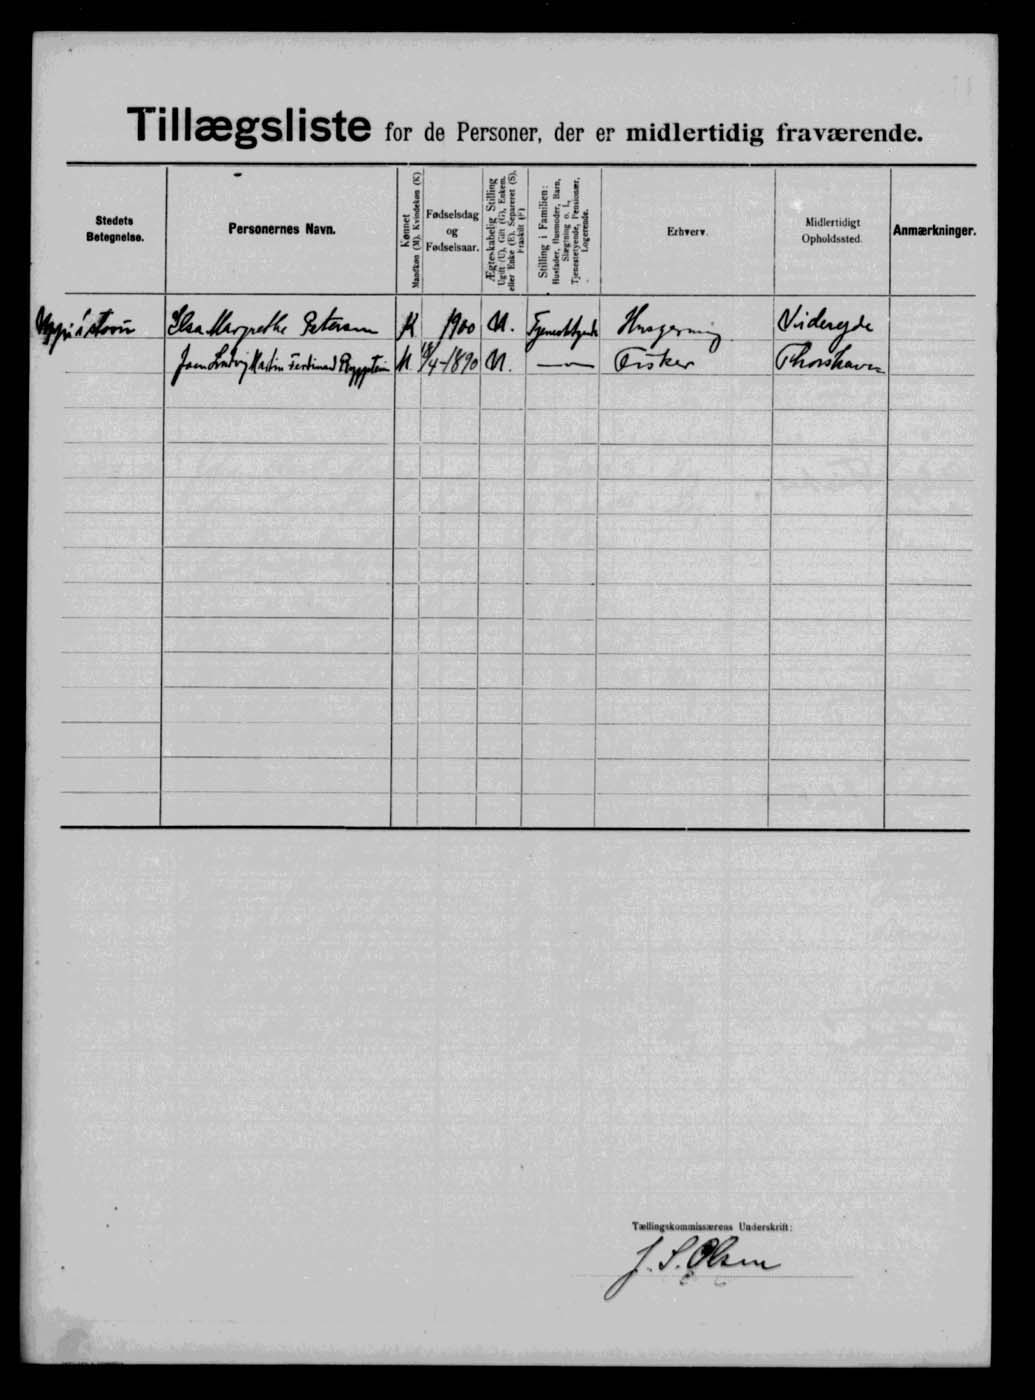 Tillægsliste for de Personer, der er midlertidig fraværende.
Stedets Betegnelse.
Personernes Navn.
Kønnet
Mandkøn (M). Kvindekøn (K)
Fødselsdag
og
Fødselsaar.
Ægteskabelig Stilling
Ugift (U), Gift (G), Enkem.
eller Enke (E), Separeret (S),
Fraskilt (F)
Stilling i Familien:
Husfader, Husmoder, Barn,
Slægtning o. l.,
Tjenestetyende, Pensionær,
Logerende.
Erhverv.
Midlertidigt
Opholdssted.
Anmærkninger.
Uppi i stovu Elsa Margrethe Petersen K 1900 U. Tjenestetyende Husgerning Viderejde
Ludvig Martin Ferdinand M. /4-1890 U. — Fisker Thorshavn
Tællingskommissærens Underskrift:
J. S. Olsen